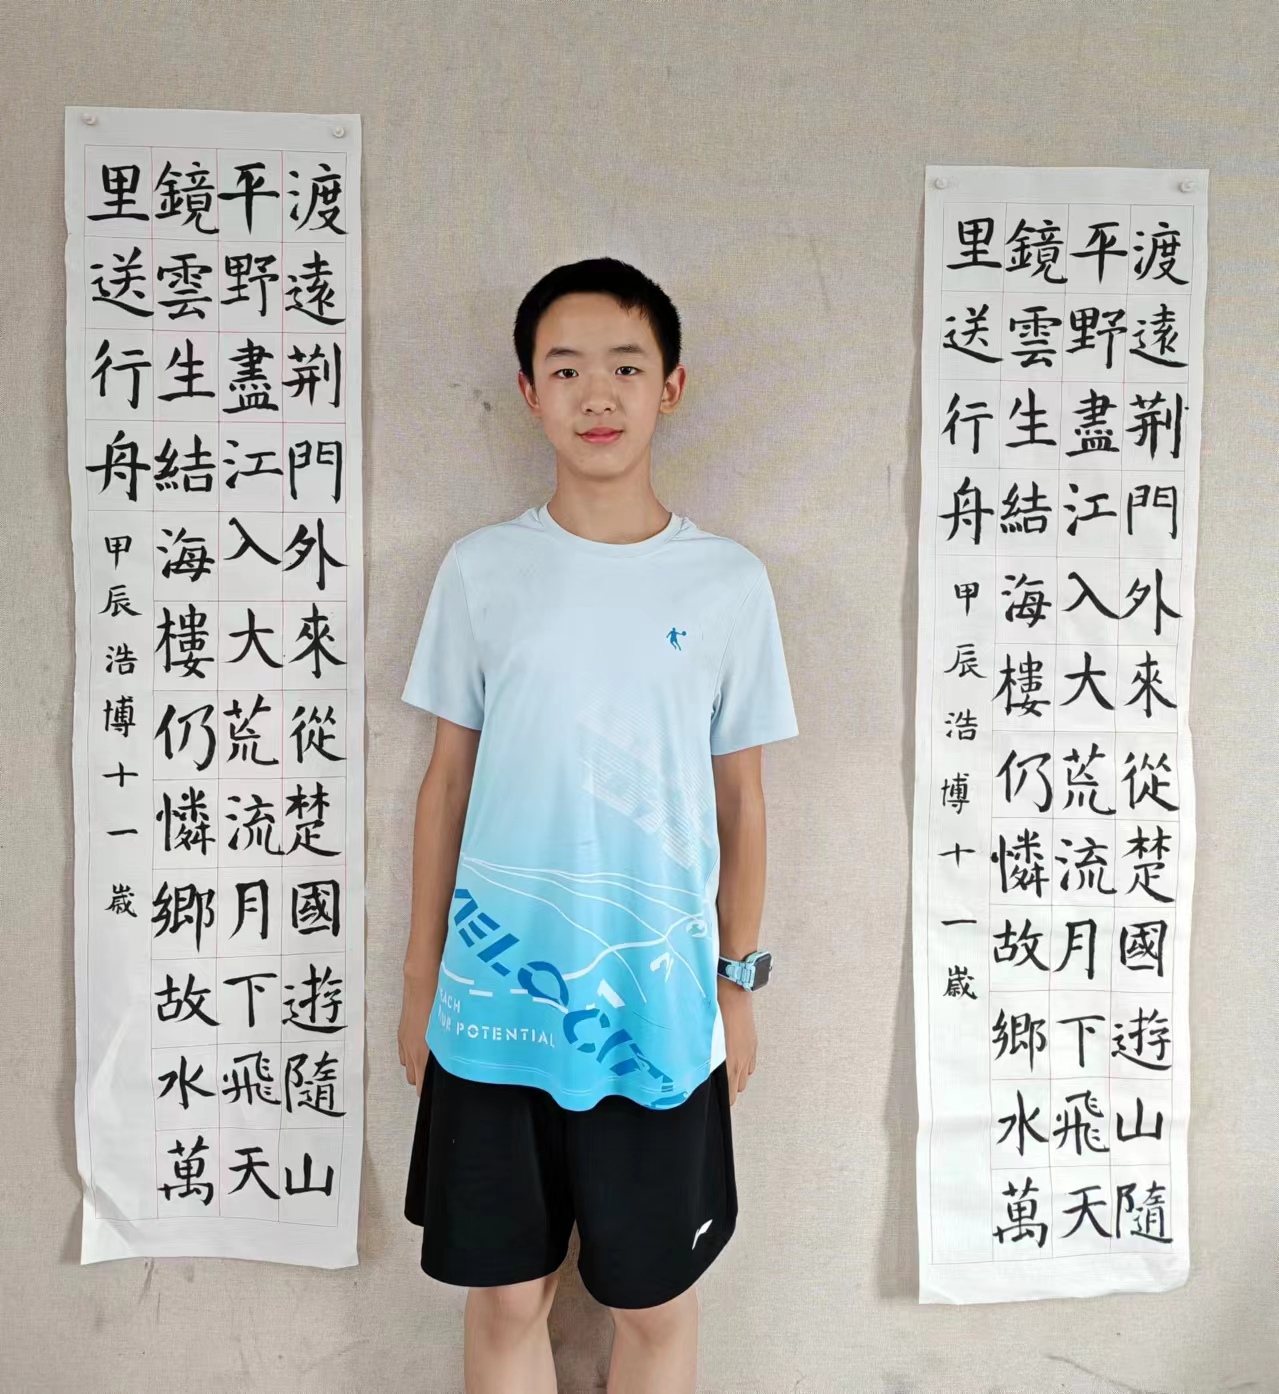 渡遠荊門外來從楚國遊隨山
平野盡江入大荒流月下飛天
鏡雲生結海樓仍憐鄉故水萬
里送行舟 甲辰浩博十一歲
POTENTIAL
渡遠荊門外來從楚國遊山隨
平野盡江入大荒流月下飛天
鏡雲生結海樓仍憐故鄉水萬
里送行舟 甲辰浩博十一歲